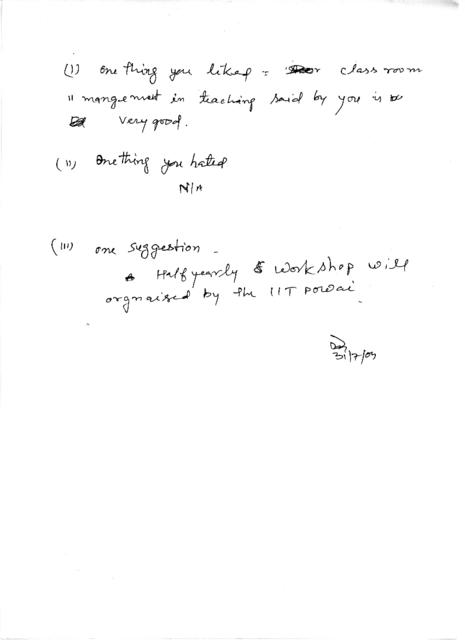 (I) one thing you liked = class room
" mangement in teaching said by you is
very good.
(II) one thing you hated
N/A
(III) one suggestion -
Half yearly workshop will
orgnaised by the IIT powai
31/7/09